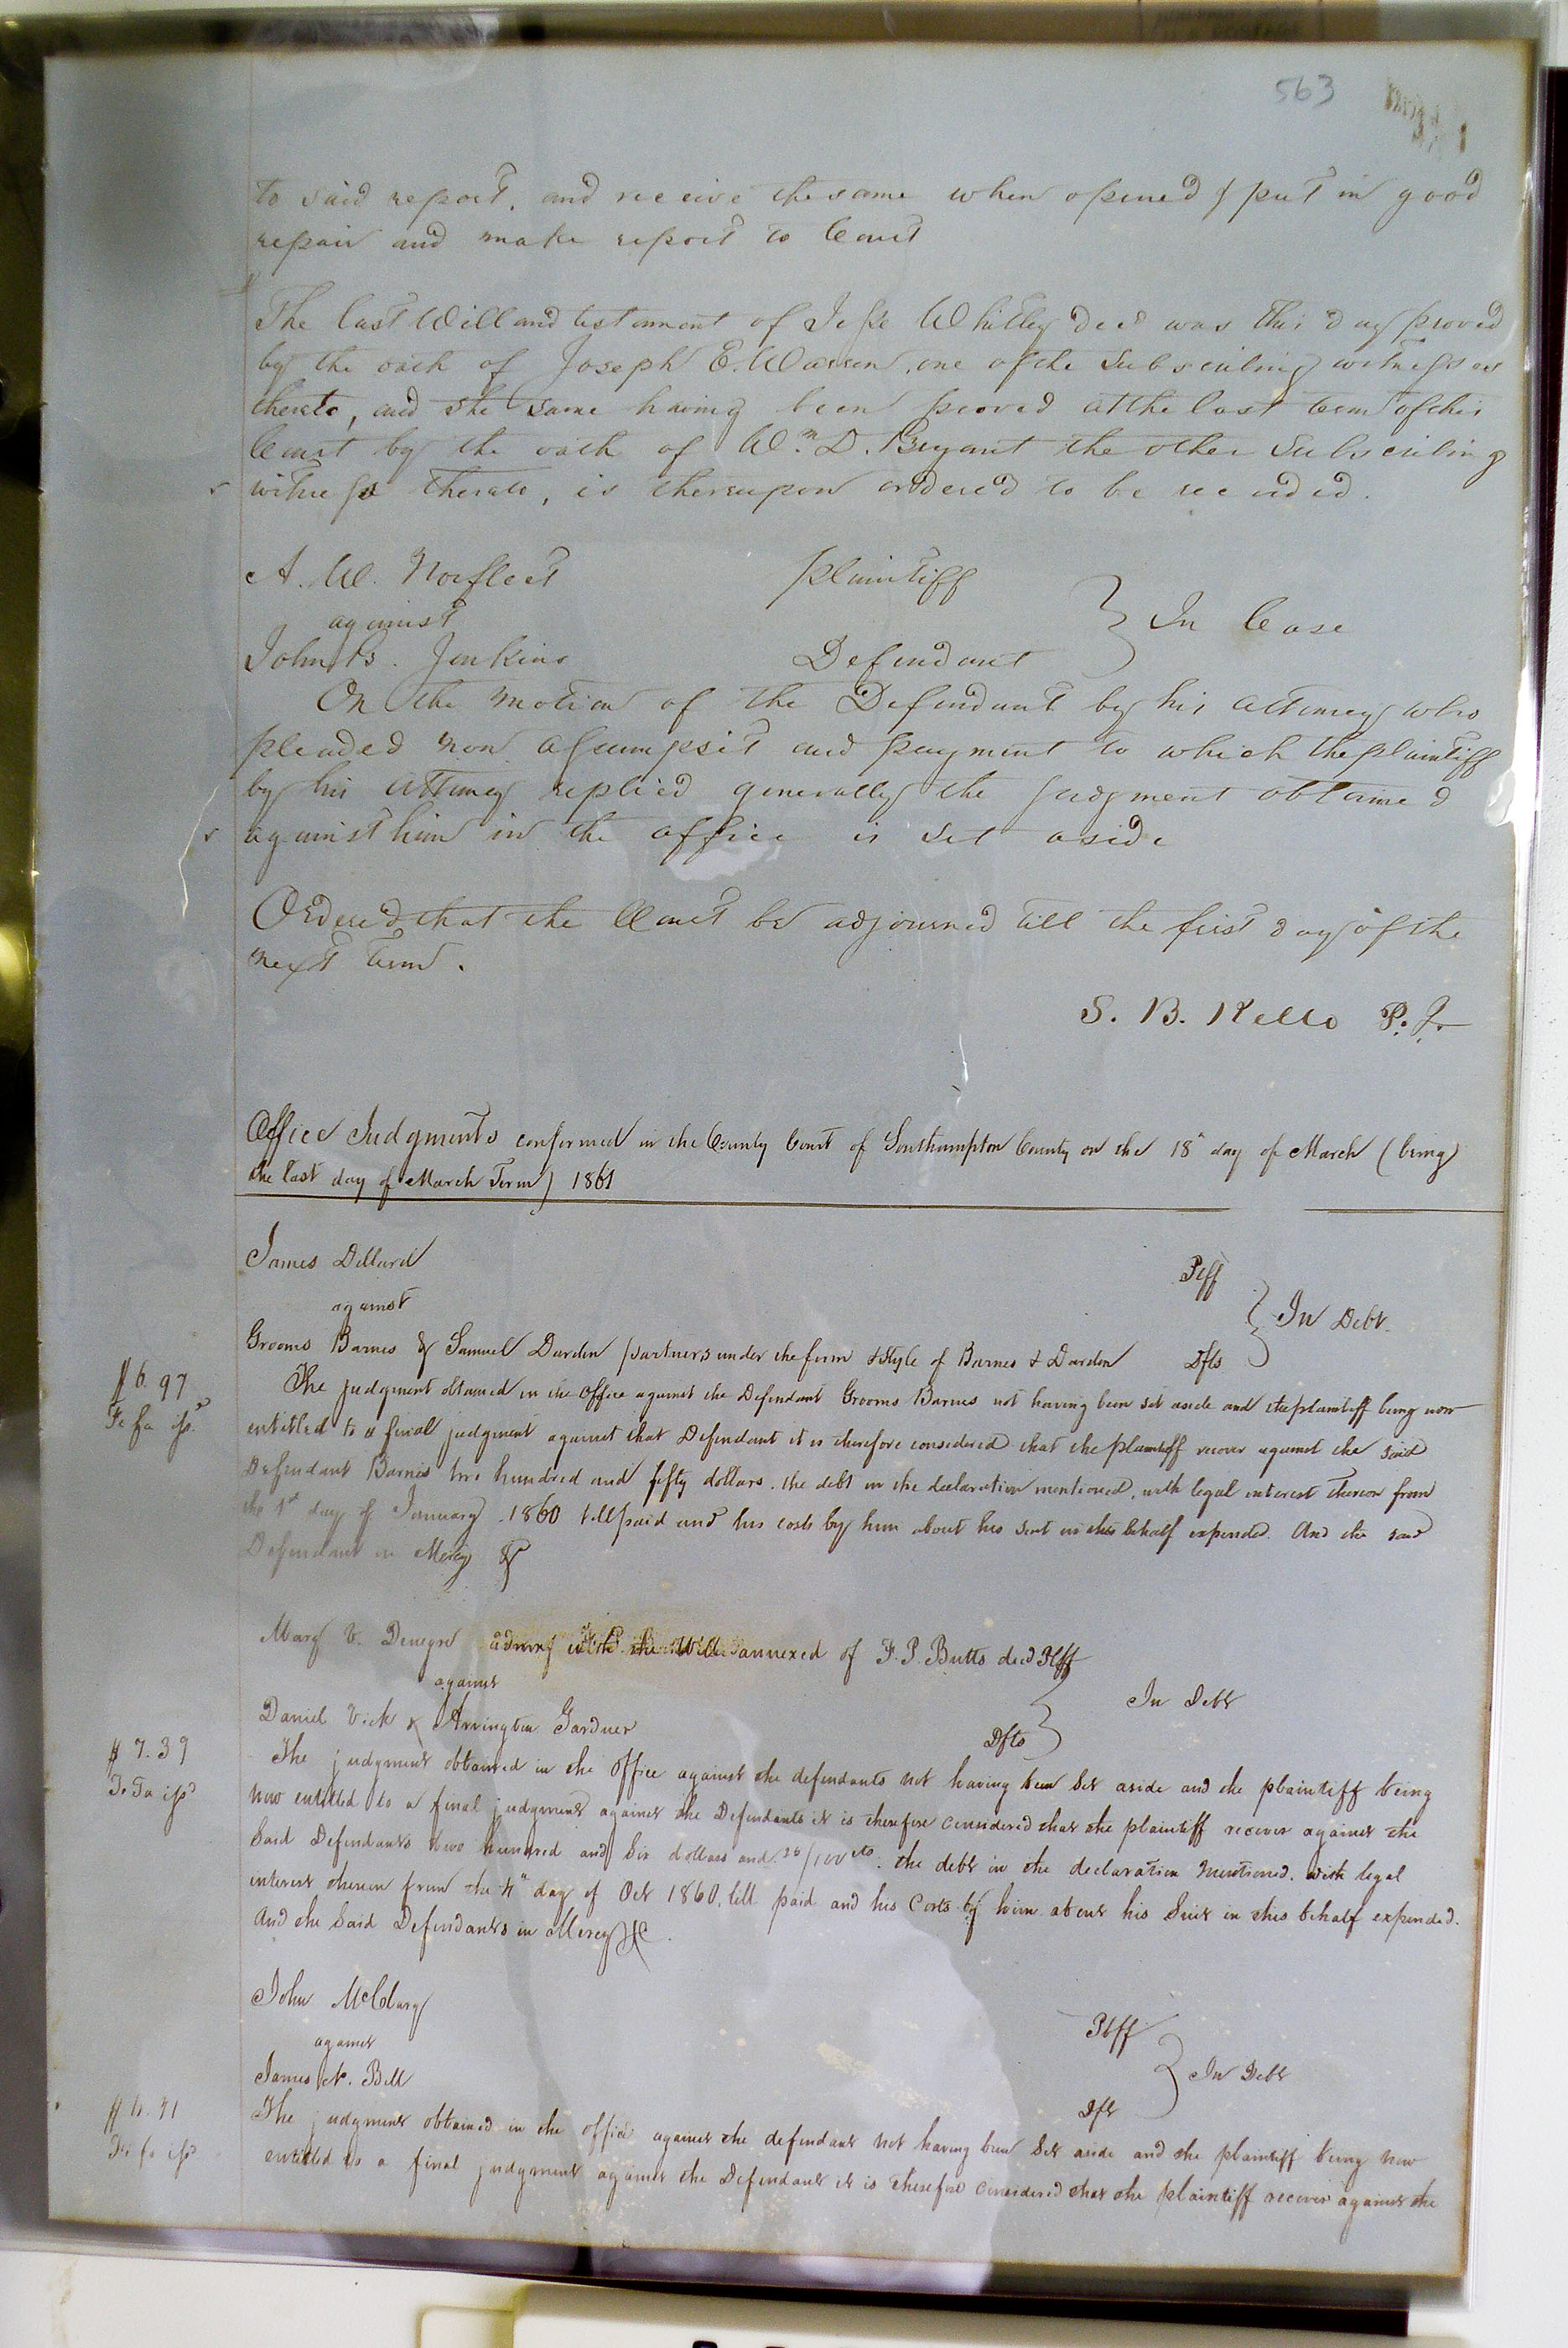 563
to said report, and receive the same when opened & put in good
repair and make report to Court
The last Will and testament of Jesse Whitley dec'd was this day proved
by the oath of Joseph E. Warren, one of the subscribing witnesses
thereto, and the same having been proved at the last term of this
Court by the oath of Wm D. Bryant the other subscribing
witness thereto, is thereupon ordered to be recorded.
A. W. Norfleet plaintiff
against
In Case
John B. Jenkins Defendant
On the motion of the Defendant by his attorney who
pleaded non assumpsit and payment to which the plaintiff
by his attorney replied generally the judgment obtained
against him in the office is set aside
Ordered that the Court be adjourned till the first day of the
next term.
S. B. Kello P. J.
Office Judgments confirmed in the County Court of Southampton County on the 18th day of March (being
the last day of March Term) 1861
James Dillard Plff
against
In Debt.
Grooms Barnes & Samuel Darden partners under the firm & style of Barnes & Darden Dfts
$6.97
The judgment obtained in the Office against the Defendant Grooms Barnes not having been set aside and the plaintiff being now
Fi fa isd
entitled to a final judgment against that Defendant it is therefore considered that the plaintiff recover against the said
Defendant Barnes two hundred and fifty dollars. the debt in the declaration mentioned, with legal interest thereon from
the 1st day of January 1860 till paid and his costs by him about his suit in this behalf expended. And the said
Defendant in Mercy &
Mary V. admrx with the Will annexed of F. P. Butts decd Plff
against
In Debt
Daniel Vick & Arrington Gardner Dfts
$7.39
The judgment obtained in the Office against the defendants not having been set aside and the plaintiff being
Fi Fa isd
now entitled to a final judgment against the Defendants it is therefore considered that the plaintiff recover against the
Said Defendants two hundred and six dollars and 26/100 cts. the debt in the declaration mentioned. with legal
interest thereon from the 4th day of Oct 1860, till paid and his Costs by him about his Suit in this behalf expended.
And the Said Defendants in Mercy &c.
John McClurg Plff
against
In Debt
James N. Bell Dft
The judgment obtained in the office against the defendant not having been Set aside and the plaintiff being now
Fi fa isd
entitled to a final judgment against the Defendant it is therefore considered that the plaintiff recover against the